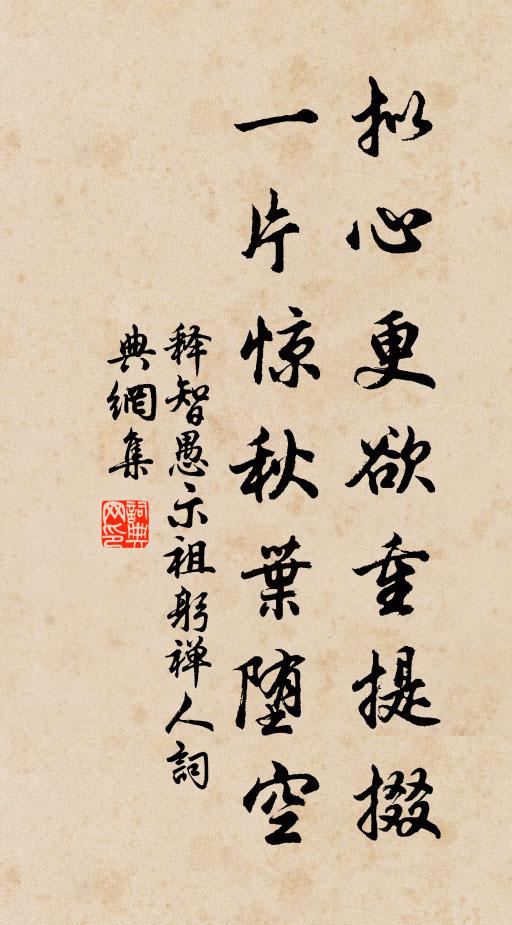 拟心更欲重提掇
一片惊秋葉堕空
释智愚示祖躬禅人詞
典網集
詞典网印